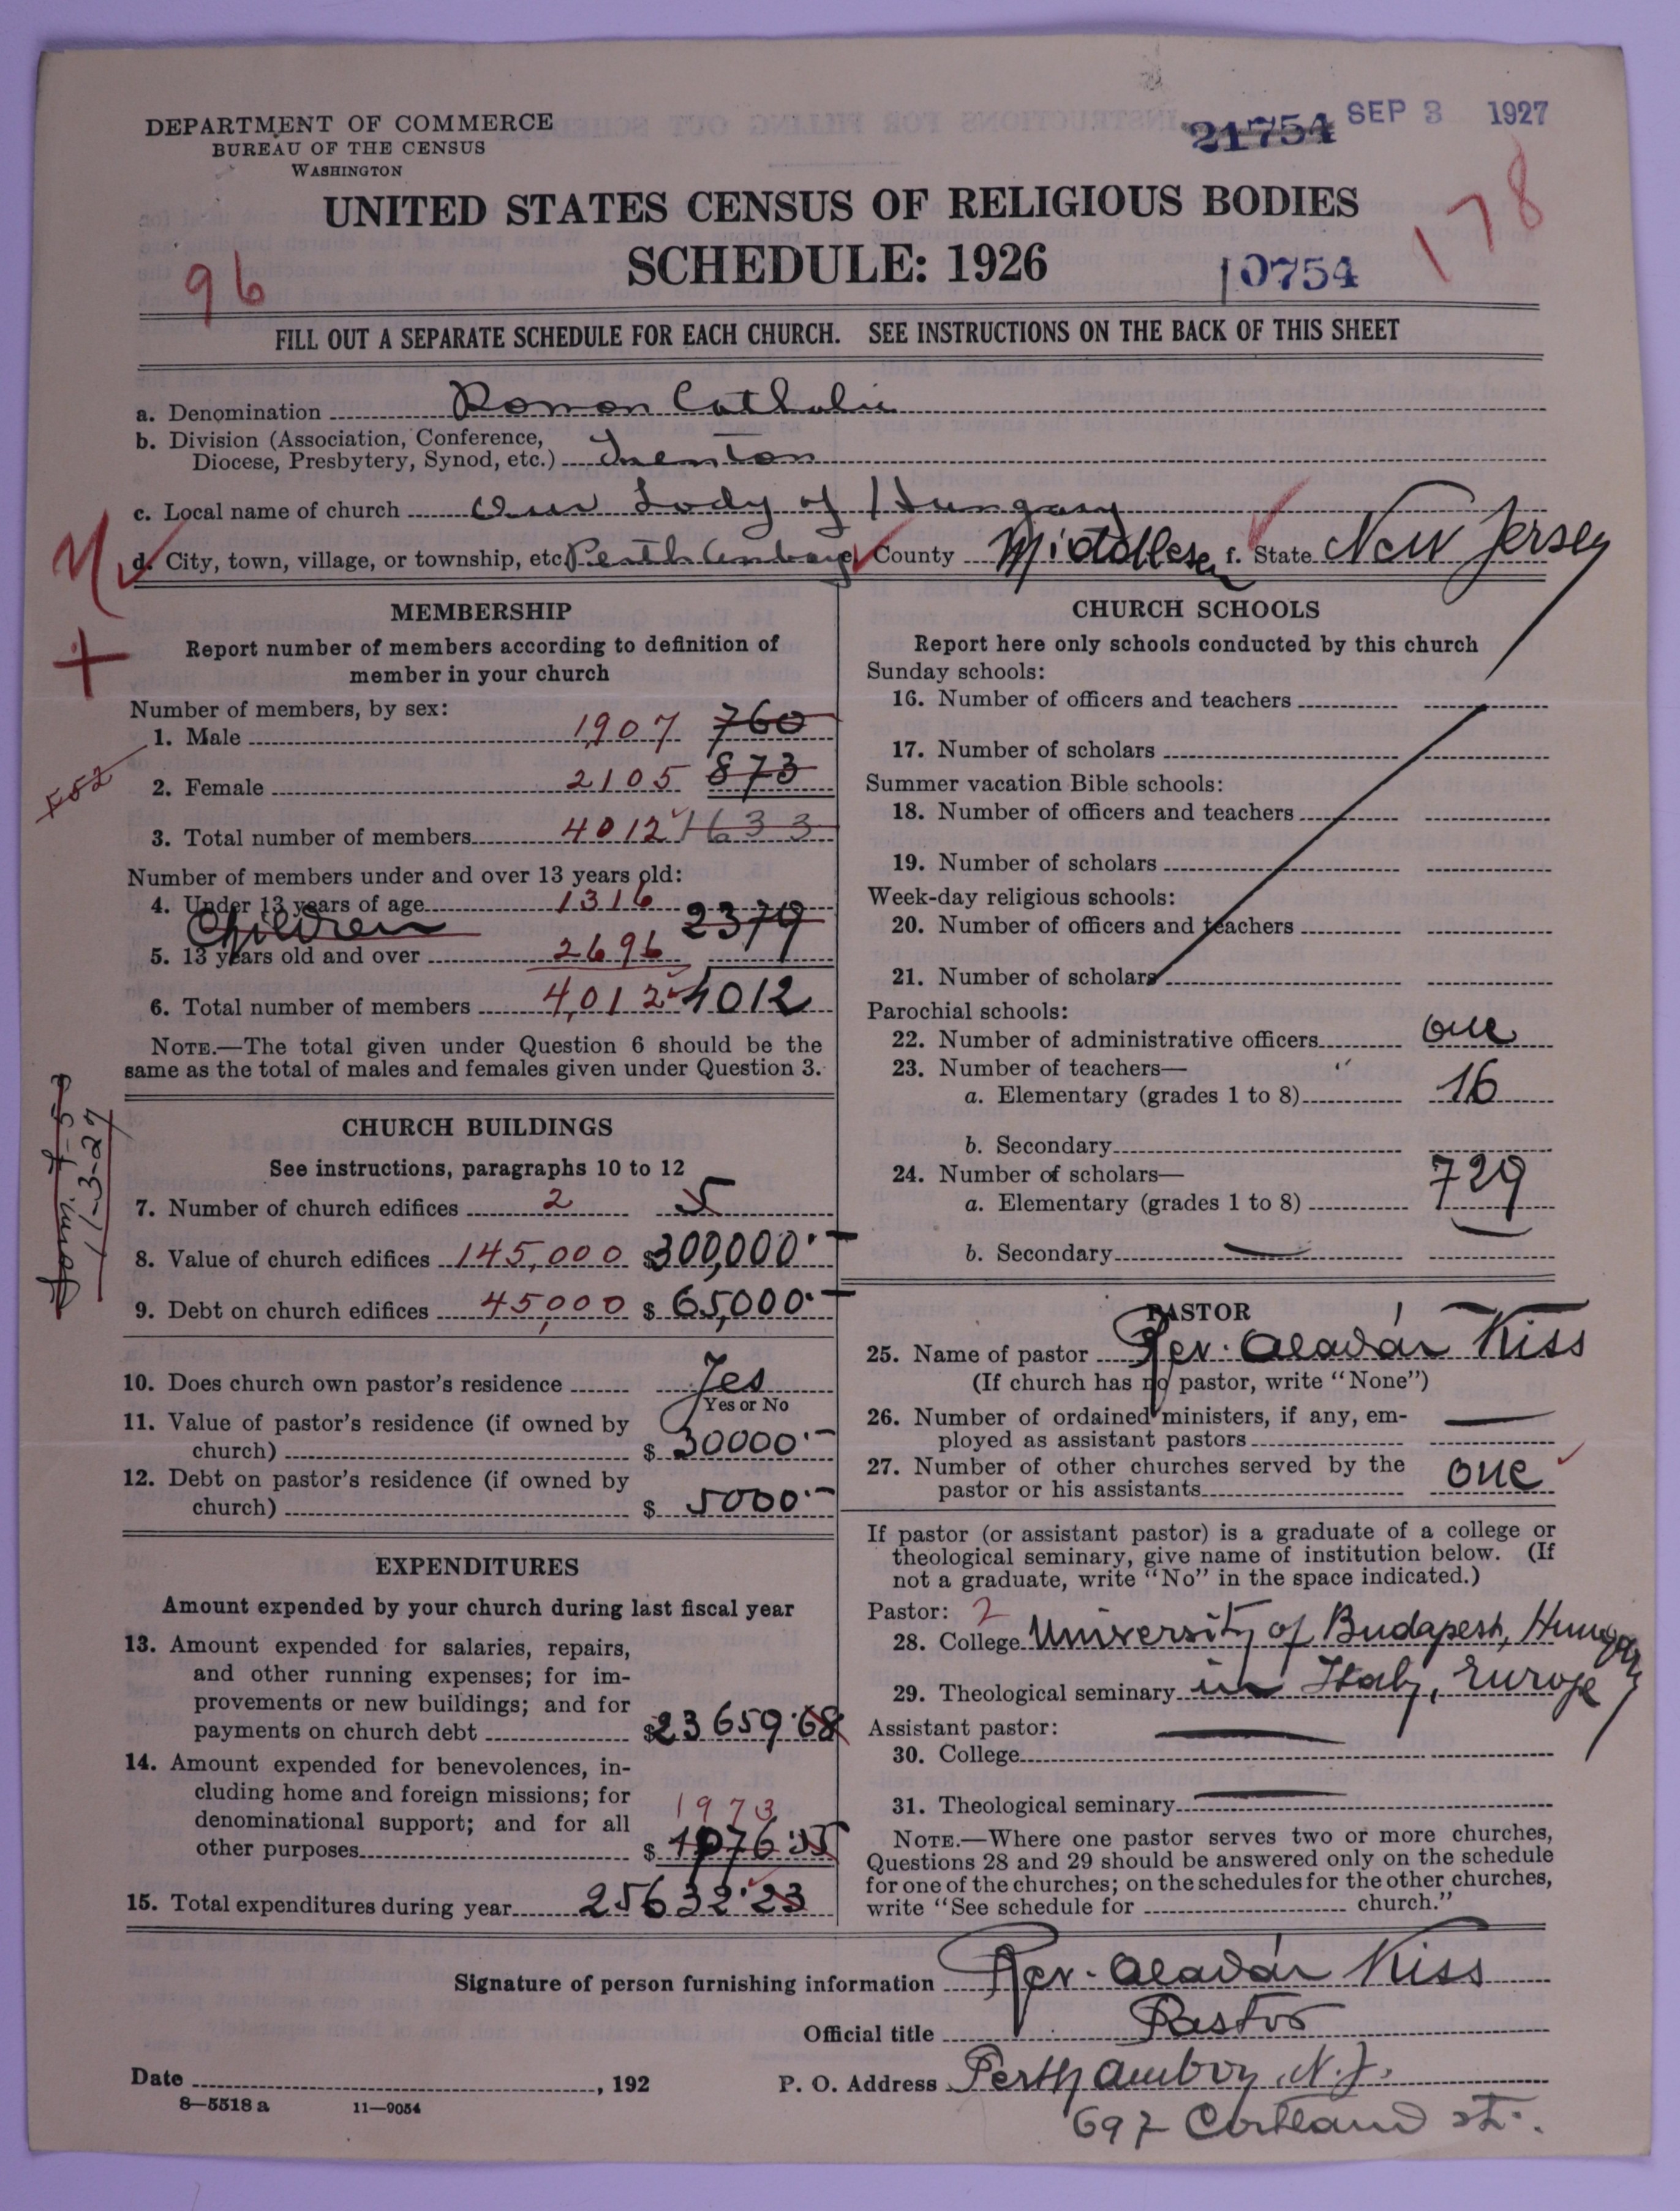 DEPARTMENT OF COMMERCE
BUREAU OF THE CENSUS
WASHINGTON
21754 SEP 3 1927
178
UNITED STATES CENSUS OF RELIGIOUS BODIES
SCHEDULE: 1926
96
10754
FILL OUT A SEPARATE SCHEDULE FOR EACH CHURCH. SEE INSTRUCTIONS ON THE BACK OF THIS SHEET
a. Denomination Roman Catholic
b. Division (Association, Conference,
Diocese, Presbytery, Synod, etc.) Trenton
c. Local name of church Our Lady of Hungary
d. City, town, village, or township, etc. Perth Amboy e. County Middlesex f. State New Jersey
MEMBERSHIP
Report number of members according to definition of
member in your church
Number of members, by sex:
1. Male 1907 760
552
2. Female 2105 873
3. Total number of members 4012 1633
Number of members under and over 13 years old:
4. Under 13 years of age 1316 2379
Children
5. 13 years old and over 2696
6. Total number of members 4,012 4012
NOTE.—The total given under Question 6 should be the
same as the total of males and females given under Question 3.
11-3-27
CHURCH BUILDINGS
See instructions, paragraphs 10 to 12
7. Number of church edifices 2 5
8. Value of church edifices 145,000 $300,000.-
9. Debt on church edifices 45,000 $ 65,000.-
10. Does church own pastor's residence Yes
Yes or No
11. Value of pastor's residence (if owned by
church) $ 30000.-
12. Debt on pastor's residence (if owned by
church) $ 5000.-
EXPENDITURES
Amount expended by your church during last fiscal year
13. Amount expended for salaries, repairs,
and other running expenses; for im-
provements or new buildings; and for
payments on church debt $23659.68
14. Amount expended for benevolences, in-
cluding home and foreign missions; for
denominational support; and for all 1973
other purposes $
15. Total expenditures during year 25632.23
CHURCH SCHOOLS
Report here only schools conducted by this church
Sunday schools:
16. Number of officers and teachers
17. Number of scholars
Summer vacation Bible schools:
18. Number of officers and teachers
19. Number of scholars
Week-day religious schools:
20. Number of officers and teachers
21. Number of scholars
Parochial schools:
22. Number of administrative officers one
23. Number of teachers— "
a. Elementary (grades 1 to 8) 16
b. Secondary
24. Number of scholars—
a. Elementary (grades 1 to 8) 729
b. Secondary —
PASTOR
25. Name of pastor Rev. Aladár Kiss
(If church has no pastor, write "None")
26. Number of ordained ministers, if any, em-
ployed as assistant pastors —
27. Number of other churches served by the
pastor or his assistants one
If pastor (or assistant pastor) is a graduate of a college or
theological seminary, give name of institution below. (If
not a graduate, write "No" in the space indicated.)
Pastor: 2
28. College University of Budapest, Hungary
29. Theological seminary in Italy, Europe
Assistant pastor:
30. College —
31. Theological seminary —
NOTE.—Where one pastor serves two or more churches,
Questions 28 and 29 should be answered only on the schedule
for one of the churches; on the schedules for the other churches,
write "See schedule for church."
Signature of person furnishing information Rev. Aladár Kiss
Official title Pastor
Date , 192
P. O. Address Perth Amboy, N.J.
697 Cortland st.
8—5518 a 11—9054